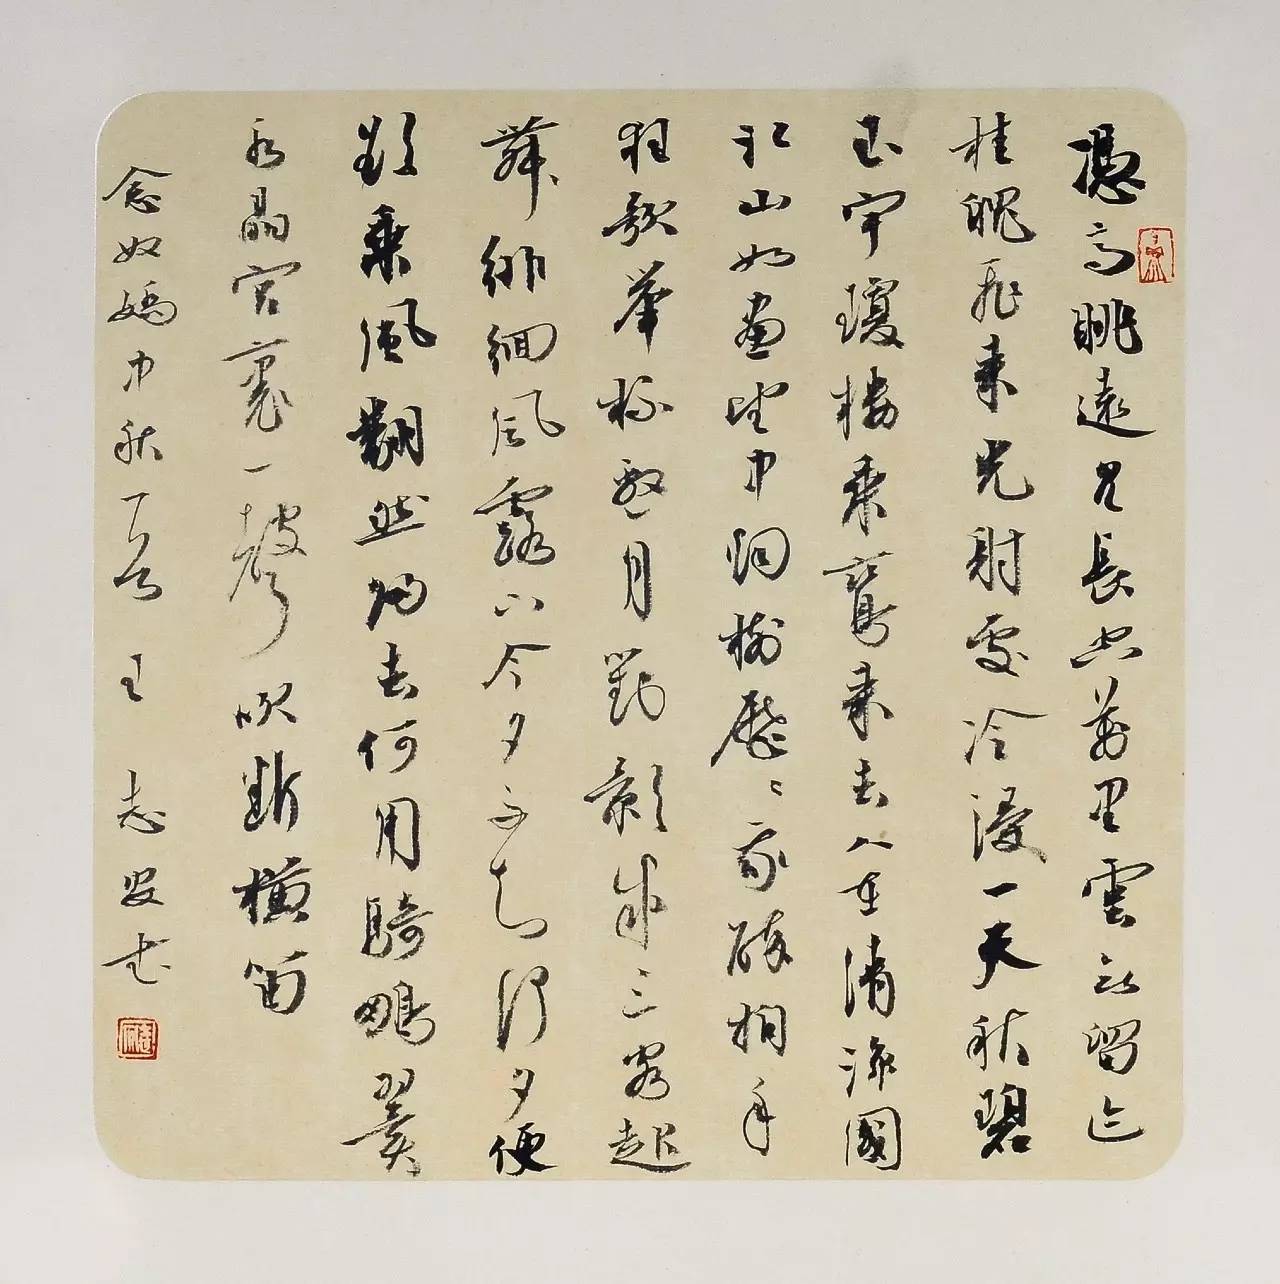 憑高眺遠見長空萬里雲無留迹
桂魄飛來光射處冷浸一天秋碧
玉宇瓊樓乘鸞來去人在清涼國
江山如畫望中烟樹歷歷我醉拍手
狂歌舉杯邀月對影成三客起
舞徘徊風露下今夕不知何夕便
欲乘風翻然歸去何用騎鵬翼
水晶宮裏一聲吹斷橫笛
念奴嬌中秋一首 王志安書